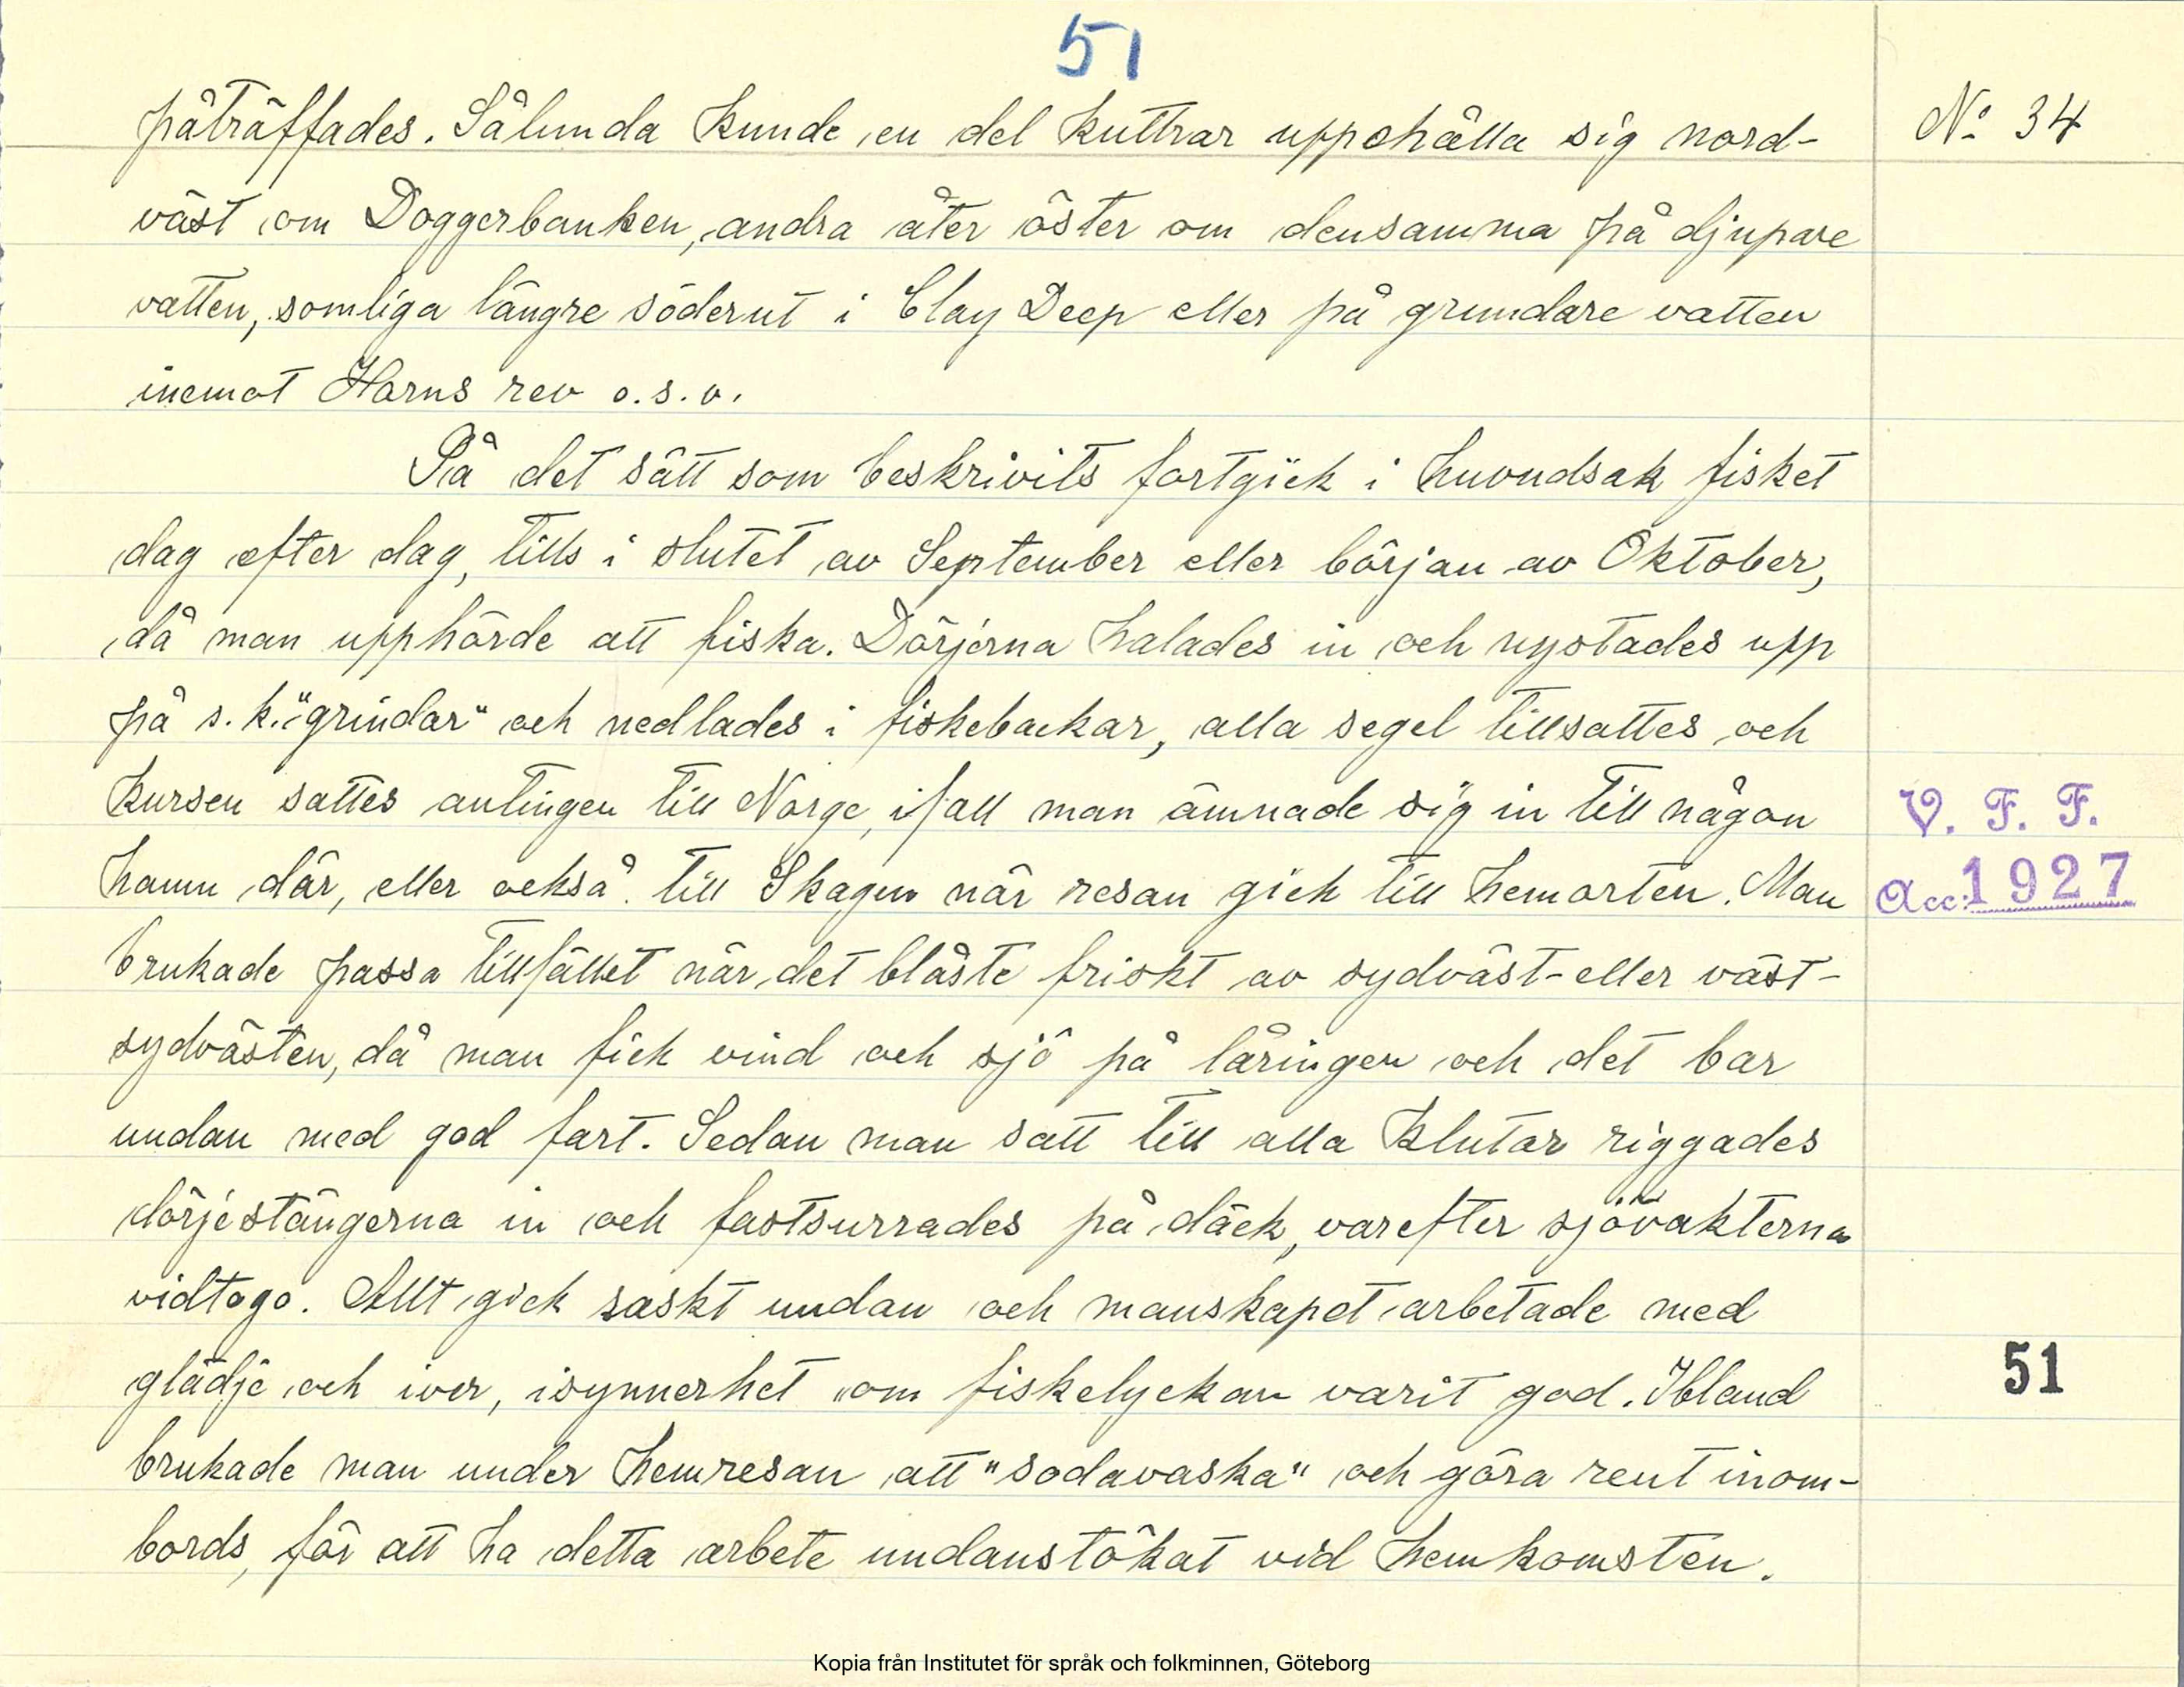 51
påträffades. Sålunda kunde en del kuttrar uppehålla sig nord-
No: 34
väst om Doggerbanken, andra åter öster om densamma på djupare
vatten, somliga längre söderut i Clay Deep eller på grundare vatten
inemot Horns rev o.s.v.
På det sätt som beskrivits fortgick i huvudsak fisket
dag efter dag, tills i slutet av September eller början av Oktober,
då man upphörde att fiska. Dörjerna halades in och nystades upp
på s.k. "grindar" och nedlades i fiskebackar, alla segel tillsattes och
kursen sattes antingen till Norge, ifall man ämnade sig in till någon
V. F. F.
hamn där, eller också till Skagen när resan gick till hemorten. Man
Acc. 1927
brukade passa tillfället när det blåste friskt av sydväst- eller väst-
sydvästen, då man fick vind och sjö på låringen och det bar
undan med god fart. Sedan man satt till alla klutar riggades
dörjestängerna in och fastsurrades på däck, varefter sjövakterna
vidtogo. Allt gick raskt undan och manskapet arbetade med
glädje och iver, isynnerhet om fiskelyckan varit god. Ibland
51
brukade man under hemresan att "sodavaska" och göra rent inom-
bords, för att ha detta arbete undanstökat vid hemkomsten.
Kopia från Institutet för språk och folkminnen, Göteborg